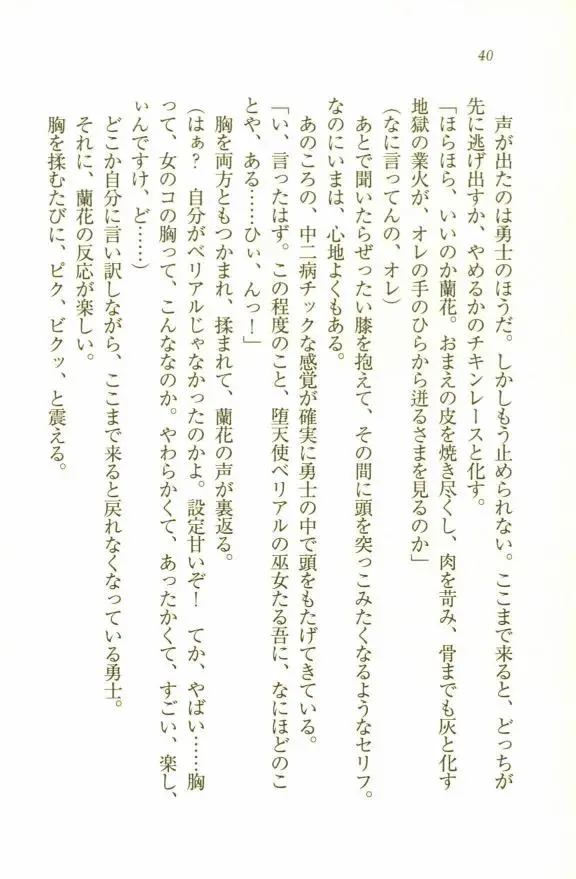 40
声が出たのは勇士のほうだ。しかしもう止められない。ここまで来ると、どっちが
先に逃げ出すか、やめるかのチキンレースと化す。
「ほらほら、いいのか蘭花。おまえの皮を焼き尽くし、肉を苛み、骨までも灰と化す
地獄の業火が、オレの手のひらから迸るさまを見るのか」
(なに言ってんの、オレ)
あとで聞いたらぜったい膝を抱えて、その間に頭を突っこみたくなるようなセリフ。
なのにいまは、心地よくもある。
あのころの、中二病チックな感覚が確実に勇士の中で頭をもたげてきている。
「い、言ったはず。この程度のこと、堕天使ベリアルの巫女たる吾に、なにほどのこ
とや、ある……ひぃ、んっ!」
胸を両方ともつかまれ、揉まれて、蘭花の声が裏返る。
(はぁ? 自分がベリアルじゃなかったのかよ。設定甘いぞ! てか、やばい……胸
って、女のコの胸って、こんななのか。やわらかくて、あったかくて、すごい、楽し、
いんですけ、ど……)
どこか自分に言い訳しながら、ここまで来ると戻れなくなっている勇士。
それに、蘭花の反応が楽しい。
胸を揉むたびに、ピク、ビクッ、と震える。